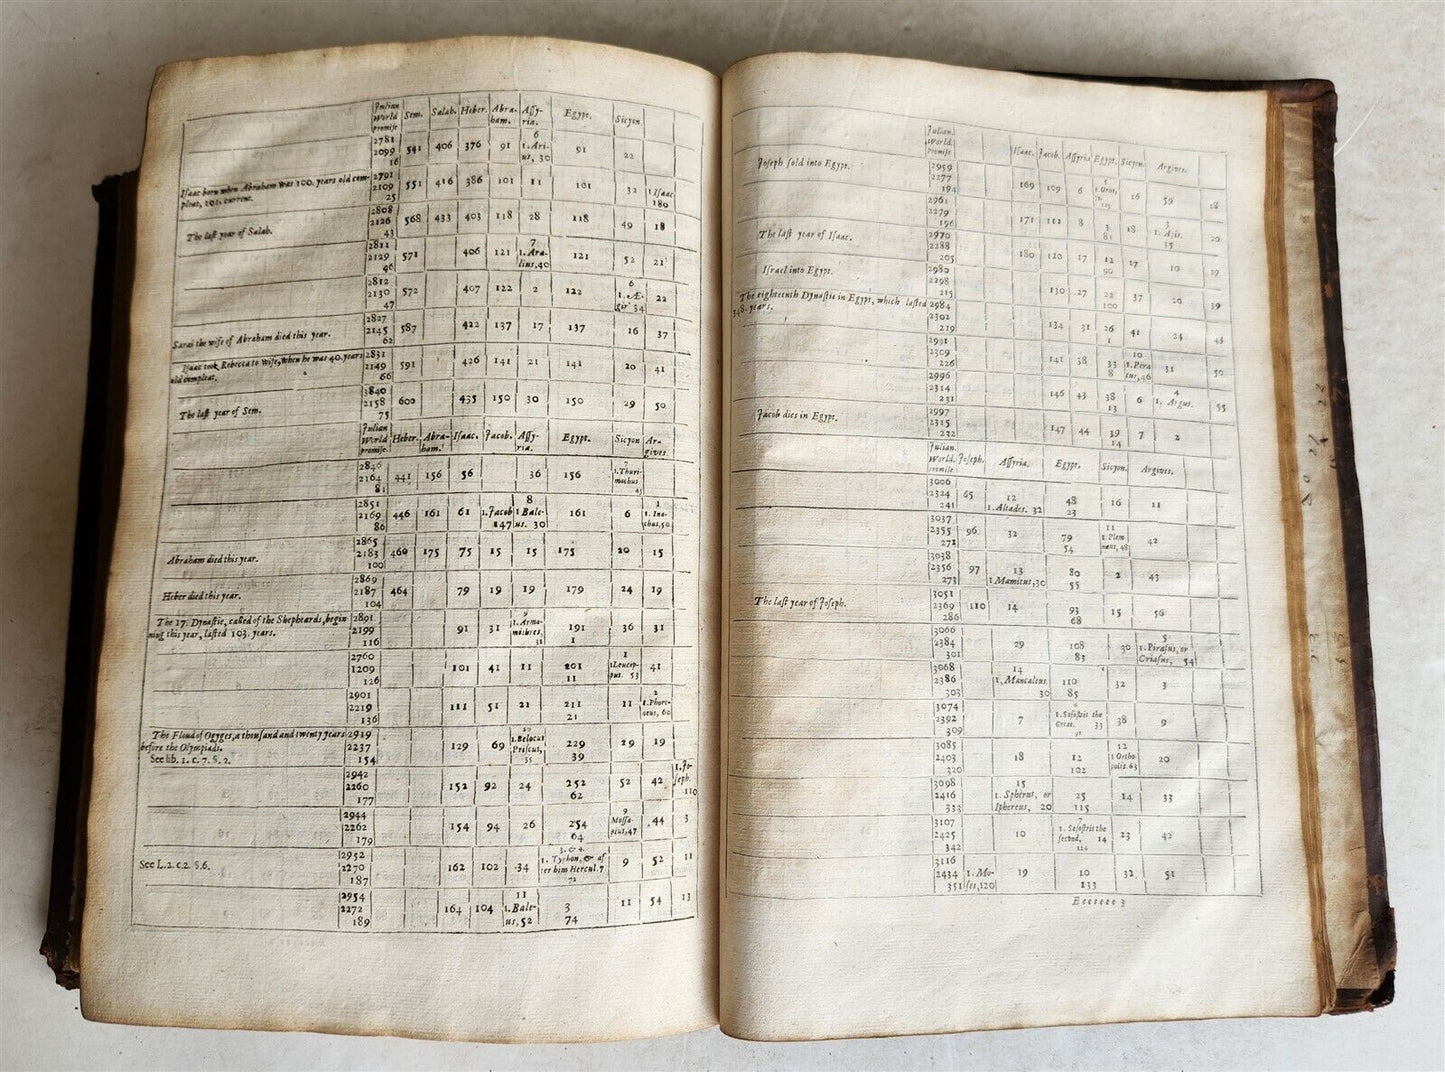 Julian World promise | Sem. | Salah. | Heber. | Abra-ham. | Assy-ria. | Egypt. | Sicyon
2781 2099 16 | 541 | 406 | 376 | 91 | 6 1. Ari-us, 30 | 91 | 22
Isaac born when Abraham was 100. years old com-
pleat, 101. current.
2791 2109 25 | 551 | 416 | 386 | 101 | 11 | 101 | 32 | 1 Isaac 180
The last year of Salah.
2808 2126 43 | 568 | 433 | 403 | 118 | 28 | 118 | 49 | 18
2811 2129 46 | 571 | 406 | 121 | 7 1. Ara-lius, 40 | 121 | 52 | 21
2812 2130 47 | 572 | 407 | 122 | 2 | 122 | 6 1. Æ-gir 34 | 22
Sarai the wife of Abraham died this year.
2827 2145 62 | 587 | 422 | 137 | 17 | 137 | 16 | 37
Isaac took Rebecca to wife, when he was 40. years
old compleat.
2831 2149 66 | 591 | 426 | 141 | 21 | 141 | 20 | 41
The last year of Sem.
3840 2158 75 | 600 | 435 | 150 | 30 | 150 | 29 | 50
Julian World promise | Heber. | Abra-ham. | Isaac. | Jacob. | Assy-ria. | Egypt. | Sicyon | Ar-gives.
2846 2164 81 | 441 | 156 | 56 | 36 | 156 | 7 1. Thuri-machus 45
2851 2169 86 | 446 | 161 | 61 | 1. Jacob 147 | 8 1 Bale-us. 30 | 161 | 6 | 1 1. Ina-chus, 50
Abraham died this year.
2865 2183 100 | 460 | 175 | 75 | 15 | 15 | 175 | 20 | 15
Heber died this year.
2869 2187 104 | 464 | 79 | 19 | 19 | 179 | 24 | 19
The 17. Dynastie, called of the Shepheards, begin-
ning this year, lasted 103. years.
2891 2199 116 | 91 | 31 | 9 1. Arma-mithres, 31 | 191 1 | 36 | 31
2760 1209 126 | 101 | 41 | 11 | 201 11 | 1 1 Leucip-pus. 53 | 41
2901 2219 136 | 111 | 51 | 21 | 211 21 | 11 | 2 1. Phoro-neus, 60
The Floud of Ogyges, a thousand and twenty years
before the Olympiads.
See lib. 1. c. 7. §. 2.
2919 2237 154 | 129 | 69 | 10 1. Belocus Priscus, 35 | 229 39 | 29 | 19
2942 2260 177 | 152 | 92 | 24 | 252 62 | 52 | 42 | 1. Jo-seph. 110
2944 2262 179 | 154 | 94 | 26 | 254 64 | 9 Messa-pius, 47 | 44 | 3
See L. 2. c. 2. §. 6.
2952 2270 187 | 162 | 102 | 34 | 3. & 4. 1. Typhon, & af-ter him Hercul. 7 72 | 9 | 52 | 11
2954 2272 189 | 164 | 104 | 11 1. Bale-us, 52 | 3 74 | 11 | 54 | 13
Julian. World. promise | Isaac. | Jacob. | Assyria | Egypt. | Sicyon. | Argives.
Joseph sold into Egypt.
2959 2277 194 | 169 | 109 | 6 | 16 | 59 | 18
2961 2279 196 | 171 | 111 | 8 | 3 81 | 18 | 3 1. Apis. 35 | 20
The last year of Isaac.
2970 2288 205 | 180 | 120 | 17 | 12 90 | 27 | 10 | 29
Israel into Egypt.
2980 2298 215 | 130 | 27 | 22 100 | 37 | 20 | 39
The eighteenth Dynastie in Egypt, which lasted
348. years.
2984 2302 219 | 134 | 31 | 26 1 | 41 | 24 | 43
2991 2309 226 | 141 | 38 | 33 8 | 10 1. Pera-tus, 46 | 31 | 50
2996 2314 231 | 146 | 43 | 38 13 | 6 | 4 1. Argus. | 55
Jacob dies in Egypt.
2997 2315 232 | 147 | 44 | 39 14 | 7 | 2
Julian. World. promise | Joseph. | Assyria. | Egypt. | Sicyon. | Argives.
3006 2324 241 | 65 | 12 1. Altades. 32 | 48 23 | 16 | 11
3037 2355 272 | 96 | 32 | 79 54 | 11 1. Plem-neus, 48 | 42
3038 2356 273 | 97 | 13 1 Mamitus, 30 | 80 55 | 2 | 43
The last year of Joseph.
3051 2369 286 | 110 | 14 | 93 68 | 15 | 56
3066 2384 301 | 29 | 108 83 | 30 | 5 1. Pirasus, or Criasus, 54
3068 2386 303 | 14 1, Mancaleus 30 | 110 85 | 32 | 3
3074 2392 309 | 7 | 6 1. Sesostris the Great. 33 91 | 38 | 9
3085 2403 320 | 18 | 12 102 | 12 1 Ortho-polis. 63 | 20
3098 2416 333 | 15 1. Spherus, or Iphereus, 20 | 25 115 | 14 | 33
3107 2425 342 | 10 | 7 1. Sesostris the second, 14 124 | 23 | 42
3116 2434 351 | 1. Mo-ses, 120 | 19 | 10 133 | 32 | 51
Eeeeeee 3